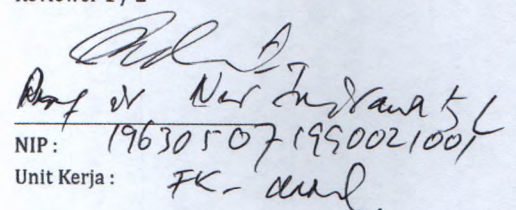 Reviewer 1 / 2
Prof dr Nur Indrawaty L
NIP : 196305071990021001
Unit Kerja : FK - Unand